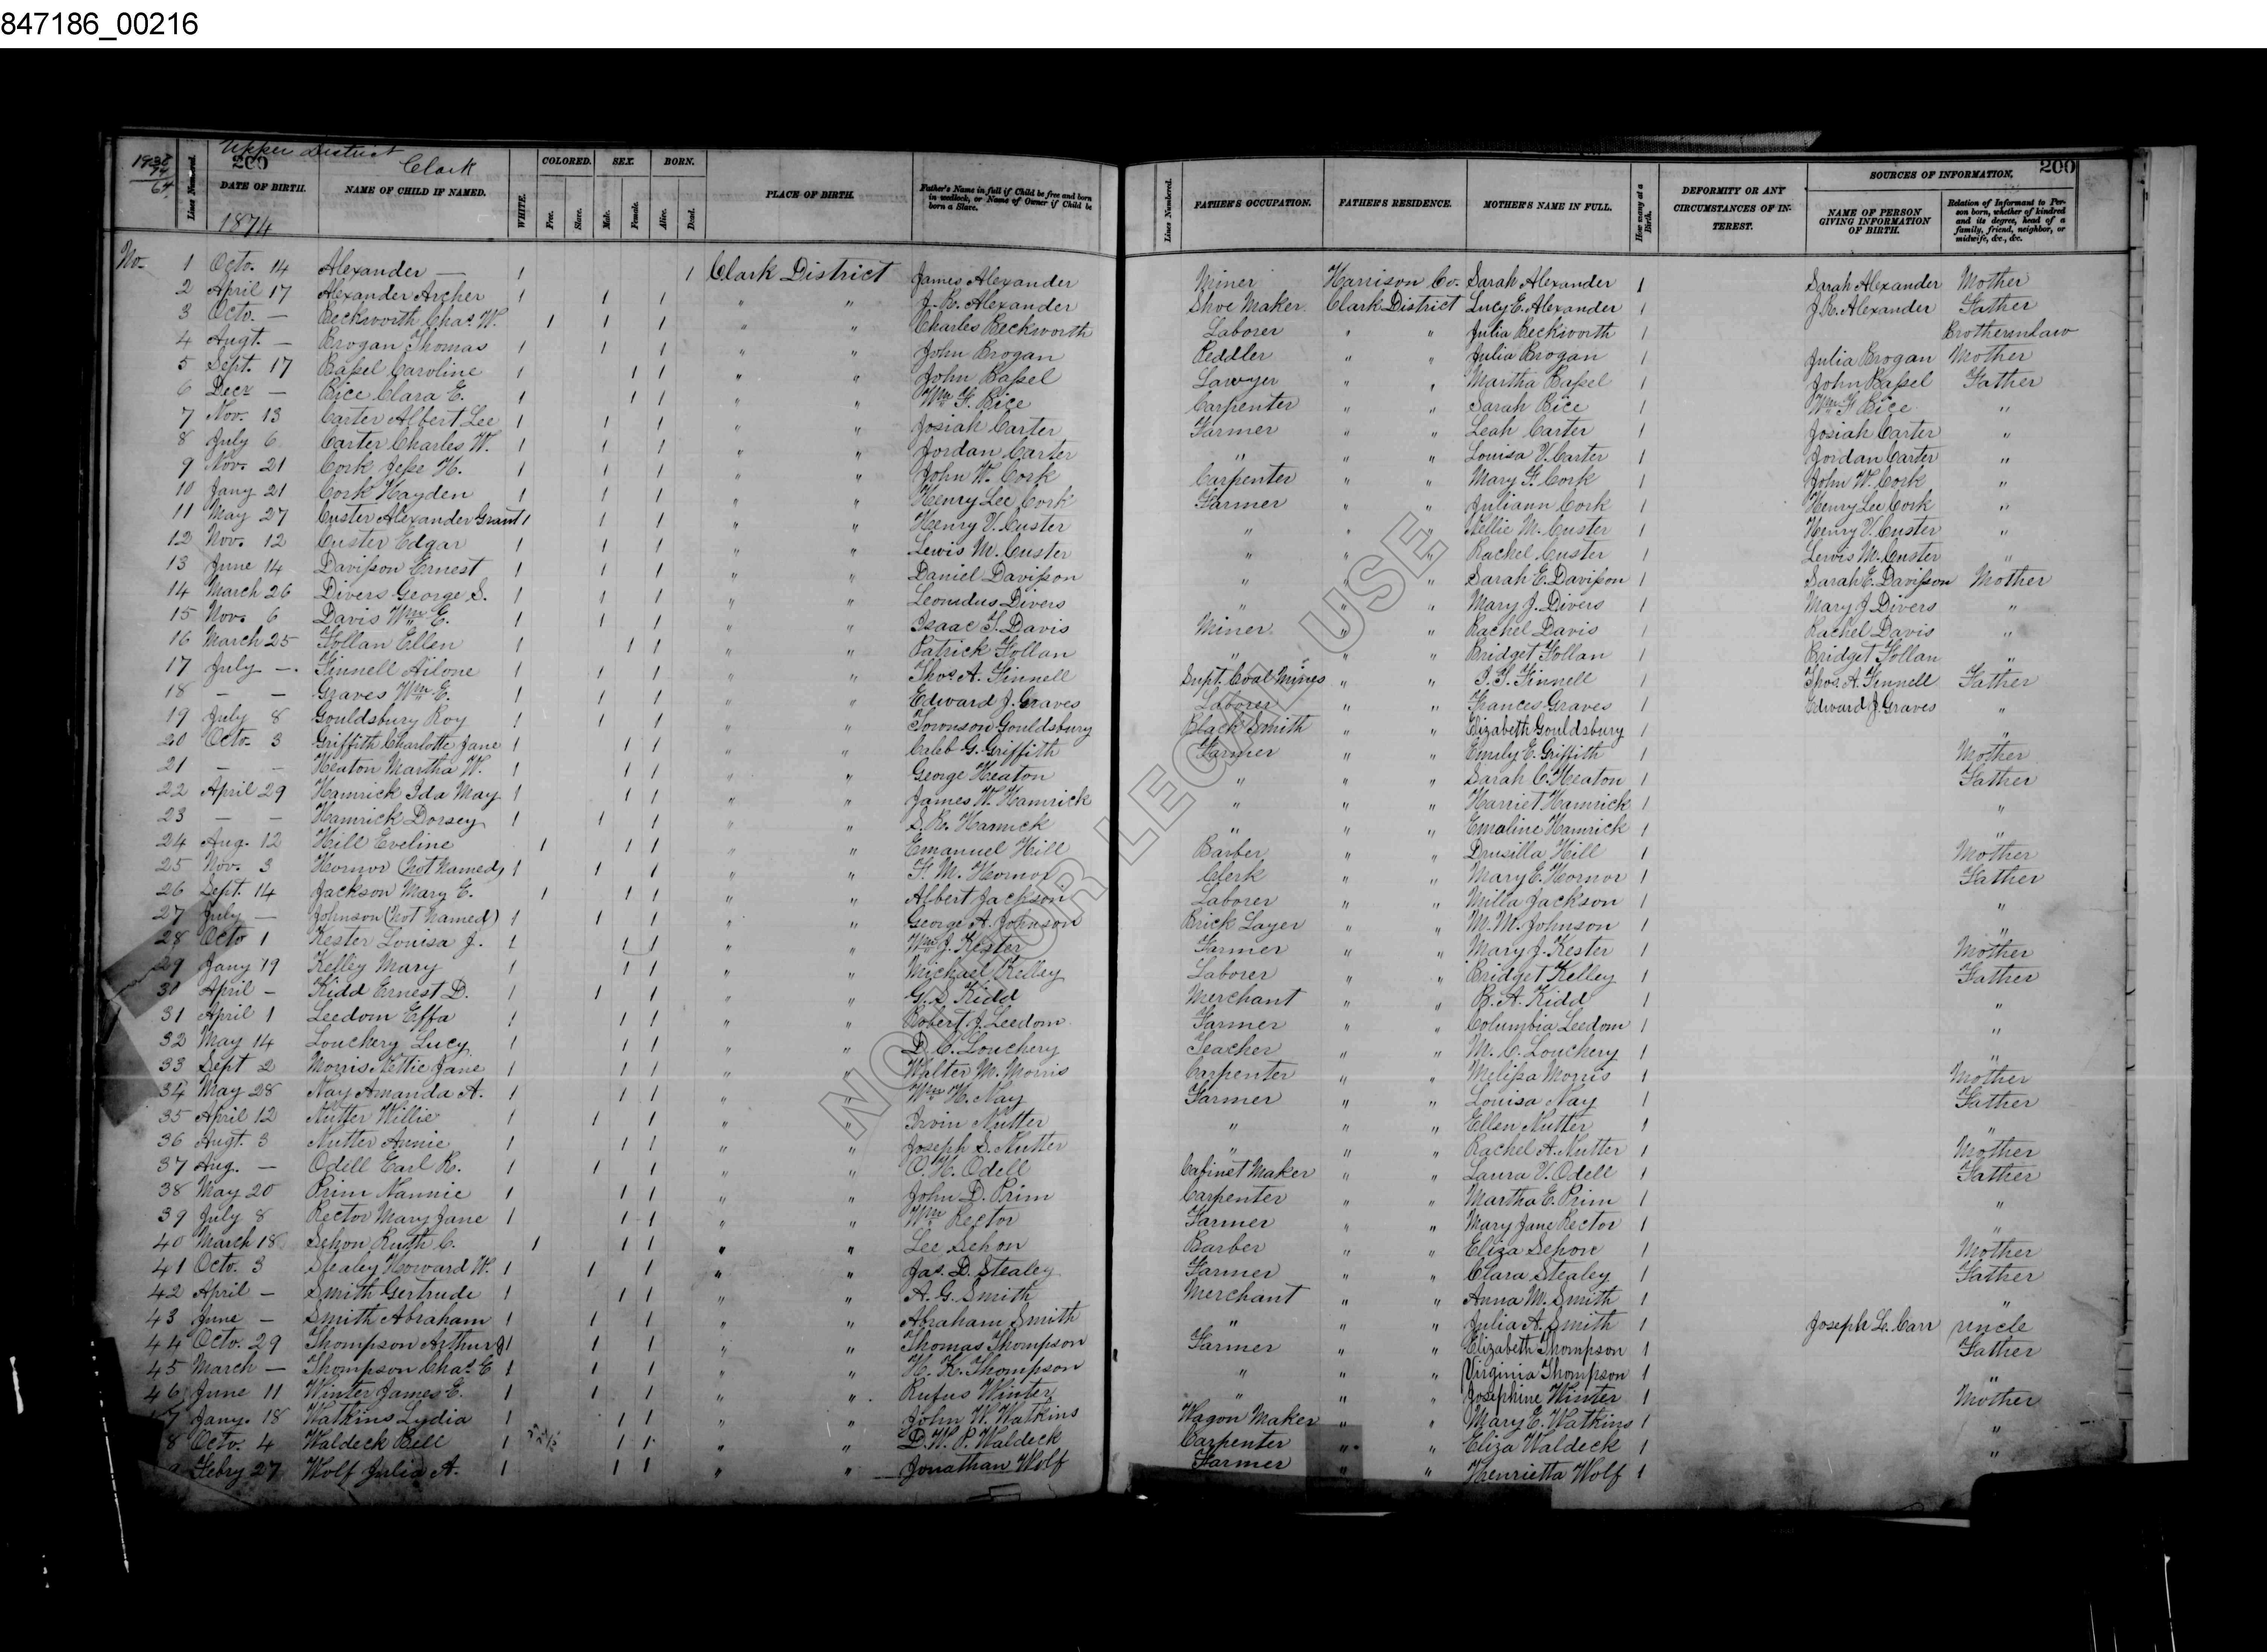 847186_00216
1938
74
64
Upper District
200
Clark
Lines Numbered.
DATE OF BIRTH.
NAME OF CHILD IF NAMED.
WHITE.
COLORED.
Free.
Slave.
SEX.
Male.
Female.
BORN.
Alive.
Dead.
PLACE OF BIRTH.
Father's Name in full if Child be free and born in wedlock, or Name of Owner if Child be born a Slave.
Lines Numbered.
FATHER'S OCCUPATION.
FATHER'S RESIDENCE.
MOTHER'S NAME IN FULL.
How many at a Birth.
DEFORMITY OR ANY CIRCUMSTANCES OF INTEREST.
SOURCES OF INFORMATION.
200
NAME OF PERSON GIVING INFORMATION OF BIRTH.
Relation of Informant to Person born, whether of kindred and its degree, head of a family, friend, neighbor, or midwife, &c., &c.
1874
No. 1 Octo. 14 Alexander — 1 1 Clark District James Alexander Miner Harrison Co. Sarah Alexander 1 Sarah Alexander Mother
2 April 17 Alexander Archer 1 1 1 " " J. R. Alexander Shoe Maker Clark District Lucy E. Alexander 1 J. R. Alexander Father
3 Octo. — Beckworth Chas. W. 1 1 1 " " Charles Beckworth Laborer " " Julia Beckworth 1 Brotherinlaw
4 Augt. — Brogan Thomas 1 1 1 " " John Brogan Peddler " " Julia Brogan 1 Julia Brogan Mother
5 Sept. 17 Bassel Caroline 1 1 1 " " John Bassel Lawyer " " Martha Bassel 1 John Bassel Father
6 Decr — Rice Clara E. 1 1 1 " " Wm. F. Rice Carpenter " " Sarah Rice 1 Wm. F. Rice "
7 Nov. 13 Carter Albert Lee 1 1 1 " " Josiah Carter Farmer " " Leah Carter 1 Josiah Carter "
8 July 6 Carter Charles W. 1 1 1 " " Jordan Carter " " " Louisa V. Carter 1 Jordan Carter "
9 Nov. 21 Cork Jesse H. 1 1 1 " " John W. Cork Carpenter " " Mary F. Cork 1 John W. Cork "
10 Jany 21 Cork Hayden 1 1 1 " " Henry Lee Cork Farmer " " Juliann Cork 1 Henry Lee Cork "
11 May 27 Custer Alexander Grant 1 1 1 " " Henry V. Custer " " " Nellie M. Custer 1 Henry V. Custer "
12 Nov. 12 Custer Edgar 1 1 1 " " Lewis M. Custer " " " Rachel Custer 1 Lewis M. Custer "
13 June 14 Davisson Ernest 1 1 1 " " Daniel Davisson " " " Sarah E. Davisson 1 Sarah E. Davisson Mother
14 March 26 Divers George S. 1 1 1 " " Leonidus Divers " " " Mary J. Divers 1 Mary J Divers "
15 Nov. 6 Davis Wm. E. 1 1 1 " " Isaac T. Davis Miner " " Rachel Davis 1 Rachel Davis "
16 March 25 Follan Ellen 1 1 1 " " Patrick Follan " " " Bridget Follan 1 Bridget Follan "
17 July — Finnell 1 1 1 " " Thos. A. Finnell Supt. Coal Mines " " Finnell 1 Thos. A. Finnell Father
18 — — Graves Wm. E. 1 1 1 " " Edward J. Graves Laborer " " Frances Graves 1 Edward J. Graves "
19 July 8 Gouldsbury Roy 1 1 1 " " Townson Gouldsbury Black Smith " " Elizabeth Gouldsbury 1 "
20 Octo. 3 Griffith Charlotte Jane 1 1 1 " " Caleb G. Griffith Farmer " " Emily E. Griffith 1 Mother
21 — — Heaton Martha W. 1 1 1 " " George Heaton " " " Sarah C. Heaton 1 Father
22 April 29 Hamrick Ida May 1 1 1 " " James W. Hamrick " " " Harriet Hamrick 1 "
23 — — Hamrick Dorsey 1 1 1 " " S. R. Hamrick " " " Emaline Hamrick 1 "
24 Aug. 12 Hill Eveline 1 1 1 " " Emanuel Hill Barber " " Drusilla Hill 1 Mother
25 Nov. 3 Hornor (Not Named) 1 1 1 " " F. M. Hornor Clerk " " Mary E. Hornor 1 Father
26 Sept. 14 Jackson Mary E. 1 1 1 " " Albert Jackson Laborer " " Milla Jackson 1 "
27 July — Johnson (Not Named) 1 1 1 " " George A. Johnson Brick Layer " " M. M. Johnson 1 "
28 Octo 1 Kester Louisa J. 1 1 1 " " Wm. J. Kester Farmer " " Mary J. Kester 1 Mother
29 Jany 19 Kelley Mary 1 1 1 " " Michael Kelley Laborer " " Bridget Kelley 1 Father
30 April — Kidd Ernest D. 1 1 1 " " G. S. Kidd Merchant " " B. A. Kidd 1 "
31 April 1 Leedom Effa 1 1 1 " " Robert J. Leedom Farmer " " Columbia Leedom 1 "
32 May 14 Louchery Lucy 1 1 1 " " D. C. Louchery Teacher " " M. C. Louchery 1 "
33 Sept 2 Morris Nettie Jane 1 1 1 " " Walter M. Morris Carpenter " " Melissa Morris 1 Mother
34 May 28 Nay Amanda A. 1 1 1 " " Wm. H. Nay Farmer " " Louisa Nay 1 Father
35 April 12 Nutter Willie 1 1 1 " " Irvin Nutter " " " Ellen Nutter 1 "
36 Augt. 3 Nutter Annie 1 1 1 " " Joseph S. Nutter " " " Rachel A. Nutter 1 Mother
37 Aug. — Odell Earl R. 1 1 1 " " O. H. Odell Cabinet Maker " " Laura V. Odell 1 Father
38 May 20 Prim Nannie 1 1 1 " " John D. Prim Carpenter " " Martha E. Prim 1 "
39 July 8 Rector Mary Jane 1 1 1 " " Wm. Rector Farmer " " Mary Jane Rector 1 "
40 March 18 Sehon Ruth C. 1 1 1 " " Lee Sehon Barber " " Eliza Sehon 1 Mother
41 Octo. 3 Stealey Howard W. 1 1 1 " " Jas. D. Stealey Farmer " " Clara Stealey 1 Father
42 April — Smith Gertrude 1 1 1 " " A. G. Smith Merchant " " Anna M. Smith 1 "
43 June — Smith Abraham 1 1 1 " " Abraham Smith " " " Julia A. Smith 1 Joseph L. Carr uncle
44 Octo. 29 Thompson Arthur J 1 1 1 " " Thomas Thompson Farmer " " Elizabeth Thompson 1 Father
45 March — Thompson Chas. E 1 1 1 " " H. K. Thompson " " " Virginia Thompson 1 "
46 June 11 Winter James E. 1 1 1 " " Rufus Winter " " " Josephine Winter 1 Mother
7 Jany. 18 Watkins Lydia 1 1 1 " " John W. Watkins Wagon Maker " " Mary E. Watkins 1 "
8 Octo. 4 Waldeck Bell 1 1 1 " " D. W. P. Waldeck Carpenter " " Eliza Waldeck 1 "
Febry 27 Wolf Julia A. 1 1 1 " " Jonathan Wolf Farmer " " Henrietta Wolf 1
NOT FOR LEGAL USE